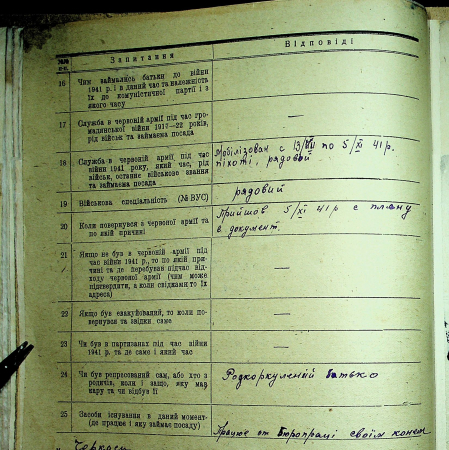 №№ п.п.
Запитання
Відповіді
16 Чим займались батьки до війни
1941 р. і в даний час та належність
їх до комуністичної партії і з
якого часу
—
17 Служба в червоній армії під час гро-
мадянської війни 1917—22 років,
рід військ та займаєма посада
—
18 Служба в червоній армії під час
війни 1941 року, який час, рід
військ, останнє військове звання
та займаєма посада
Мобілізован с 13/VII по 5/XI 41 р.
піхоті, рядовой
19 Військова спеціальність (№ ВУС)
рядовий
20 Коли повернувся з червоної армії та
по якій причині
Прийшов 5/XI 41 р с плєну
є документ.
21 Якщо не був в червоній армії під
час війни 1941 р., то по якій при-
чині та де перебував підчас від-
ходу червоної армії (чим може
підтвердити, а коли свідками то їх
адреса)
—
22 Якщо був евакуйований, то коли по-
вернувся та звідки саме
—
23 Чи був в партизанах під час війни
1941 р. та де саме і який час
—
24 Чи був репресований сам, або хто з
родичів, коли і защо, яку мав
кару та чи відбув її
Розкоркулений батько
25 Засоби існування в даний момент-
(де працює і яку займає посаду)
Працює от бюропраці своїм конем